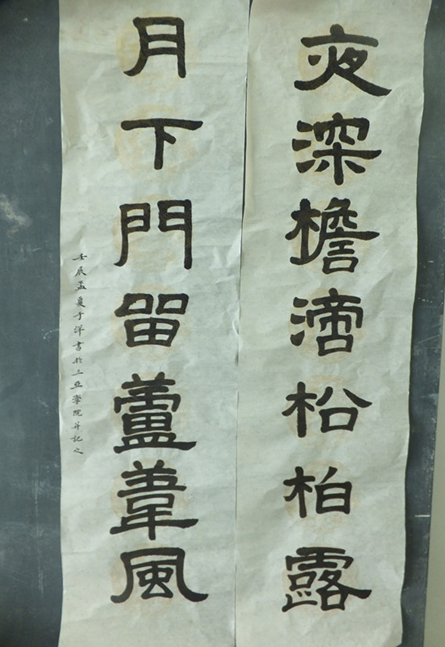 夜深檐滴松柏露
月下門留蘆葦風
壬辰孟夏于洋書於三亞學院并記之